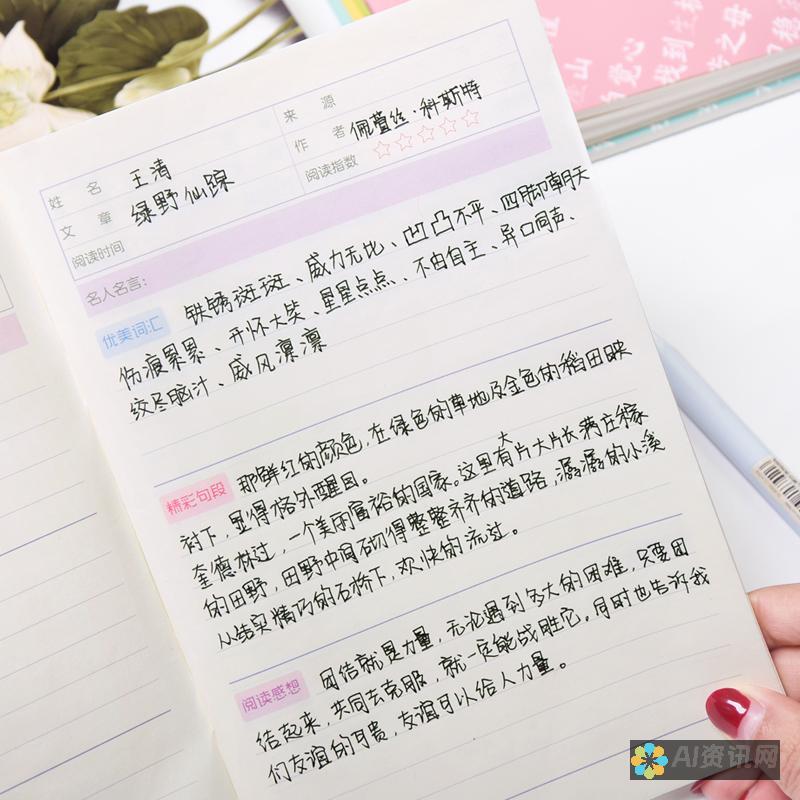 姓名 王清
来源
文章 绿野仙踪
作者 佩萱丝·科斯特
阅读时间
阅读指数 ☆☆☆☆☆
名人名言:
优美词汇 铁锈斑斑、威力无比、凹凸不平、四脚朝天
伤痕累累、开怀大笑、星星点点、不由自主、异口同声、
绞尽脑汁、威风凛凛
精彩句段 那鲜红的颜色,在绿色的草地及金色的稻田映
衬下,显得格外醒目。
奎德林过,一个美丽富裕的国家。这里有大片大片长满庄稼
的田野,田野中间砌得整整齐齐的道路,潺潺的小溪
从结实精巧的石桥下,欢快的流过。
阅读感想 团结就是力量,无论遇到多大的困难,只要团
结起来,共同去克服,就一定能战胜它。同时也告诉我
们友谊的可贵,友谊可以给人力量。
找到
觉心
之母
山
AI资讯网